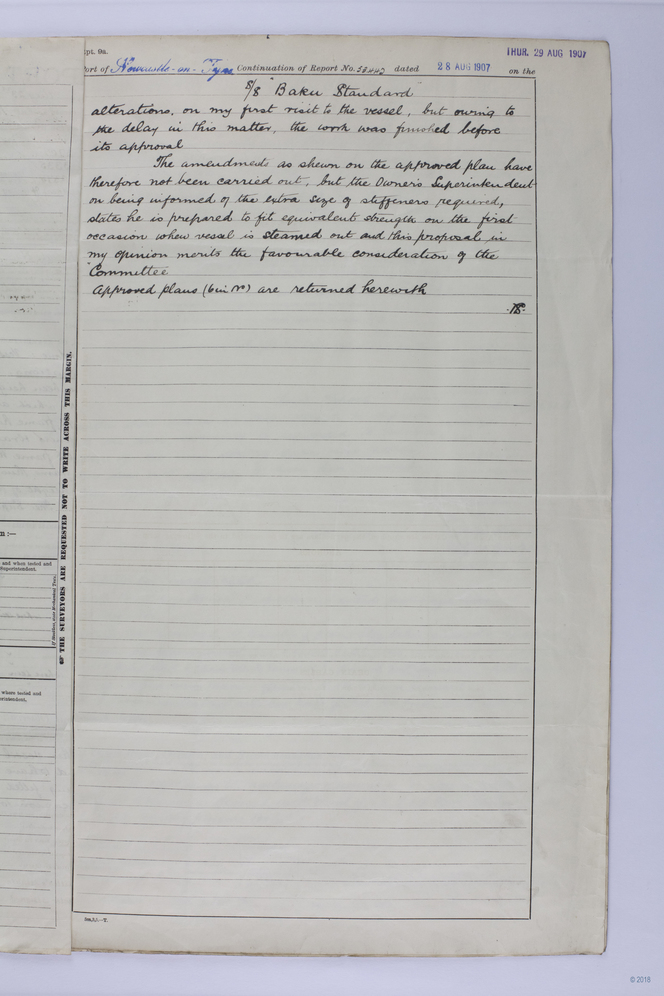 Rpt. 9a.
THUR. 29 AUG 1907
Port of Newcastle-on-Tyne Continuation of Report No. dated 28 AUG 1907 on the
S/S "Baku Standard
alterations, on my first visit to the vessel, but owing to
the delay in this matter, the work was finished before
its approval
The amendments as shewn on the approved plan have
therefore not been carried out, but the Owner's Superintendent
on being informed of the extra size of stiffeners required,
states he is prepared to fit equivalent strength on the first
occasion when vessel is steamed out and this proposal in
my opinion merits the favourable consideration of the
Committee
Approved plans (6 in No) are returned herewith
THE SURVEYORS ARE REQUESTED NOT TO WRITE ACROSS THIS MARGIN.
n :—
and when tested and
Superintendent.
where tested and
© 2018